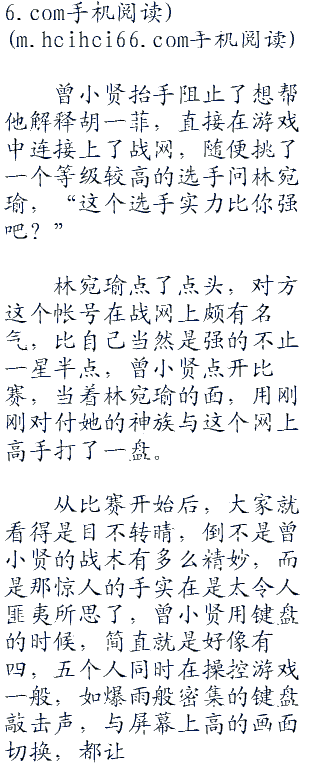 6.com手机阅读)
(m.hcihci66.com手机阅读)
曾小贤抬手阻止了想帮
他解释胡一菲，直接在游戏
中连接上了战网，随便挑了
一个等级较高的选手问林宛
瑜，“这个选手实力比你强
吧？”
林宛瑜点了点头，对方
这个帐号在战网上颇有名
气，比自己当然是强的不止
一星半点，曾小贤点开比
赛，当着林宛瑜的面，用刚
刚对付她的神族与这个网上
高手打了一盘。
从比赛开始后，大家就
看得是目不转睛，倒不是曾
小贤的战术有多么精妙，而
是那惊人的手实在是太令人
匪夷所思了，曾小贤用键盘
的时候，简直就是好像有
四，五个人同时在操控游戏
一般，如爆雨般密集的键盘
敲击声，与屏幕上高的画面
切换，都让